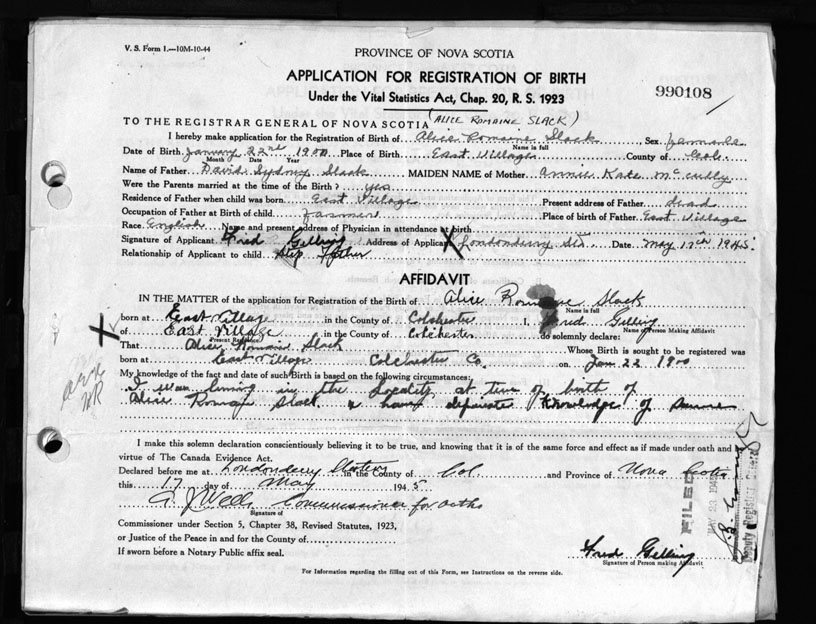 V. S. Form 1.—10M-10-44
PROVINCE OF NOVA SCOTIA
APPLICATION FOR REGISTRATION OF BIRTH
990108
Under the Vital Statistics Act, Chap. 20, R. S. 1923
(ALICE ROMAINE SLACK)
TO THE REGISTRAR GENERAL OF NOVA SCOTIA
I hereby make application for the Registration of Birth of Alice Romaine Slack Sex
Name in full
Date of Birth January 22nd 1900 Place of Birth East Village County of Col.
Month Date Year
Name of Father David Sydney Slack MAIDEN NAME of Mother Annie Kate McCully
Were the Parents married at the time of the Birth? yes
Residence of Father when child was born East Village Present address of Father Dead
Occupation of Father at Birth of child Farmer Place of birth of Father East Village
Race English Name and present address of Physician in attendance at birth
Signature of Applicant Fred Gelling Address of Applicant X Londonderry Stn. Date May 17th 1945.
Relationship of Applicant to child Step Father
AFFIDAVIT
IN THE MATTER of the application for Registration of the Birth of Alice Romaine Slack
Name in full
born at East Village in the County of Colchester I, Fred Gelling
X of East Village in the County of Colchester do solemnly declare:
Present Residence Name of Person Making Affidavit
That Alice Romaine Slack Whose Birth is sought to be registered was
born at East Village Colchester Co. on Jan 22 1900
My knowledge of the fact and date of such Birth is based on the following circumstances:
I was living in the Locality at time of birth of
Alice Romaine Slack & have definite Knowledge of same
I make this solemn declaration conscientiously believing it to be true, and knowing that it is of the same force and effect as if made under oath and by
virtue of The Canada Evidence Act.
Declared before me at Londonderry Station in the County of Col. and Province of Nova Scotia
this 17 day of May 1945
Wells Commissioner for Oaths
Signature of
Commissioner under Section 5, Chapter 38, Revised Statutes, 1923,
or Justice of the Peace in and for the County of
If sworn before a Notary Public affix seal.
Fred Gelling
Signature of Person making Affidavit
For Information regarding the filling out of this Form, see Instructions on the reverse side.
FILED
MAY 23 1945
Deputy Registrar General